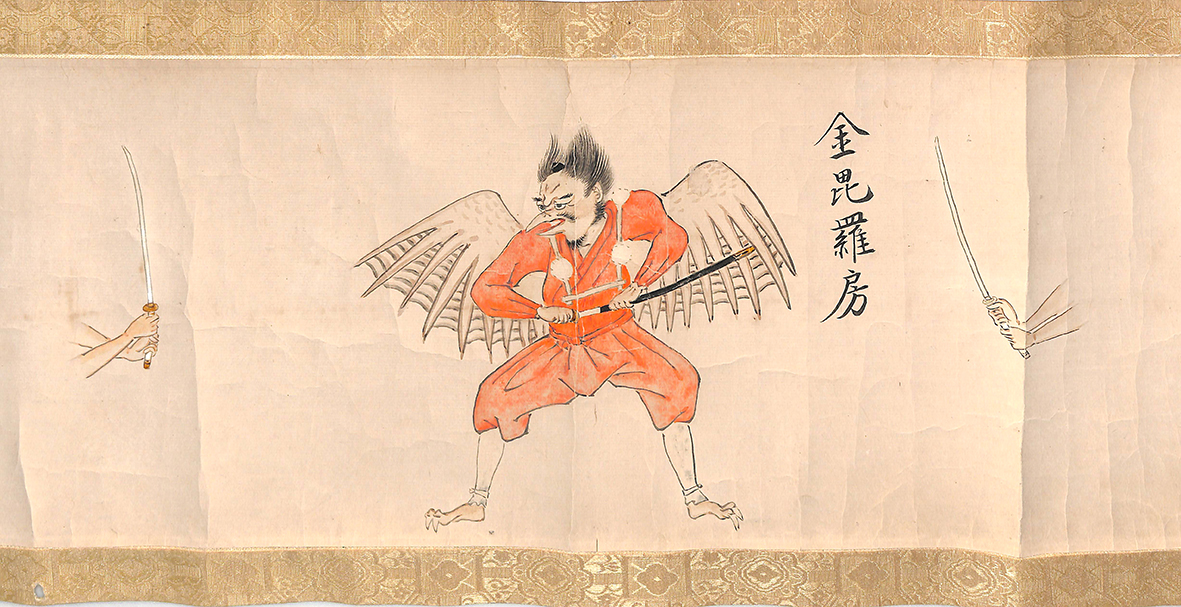 金毘羅房